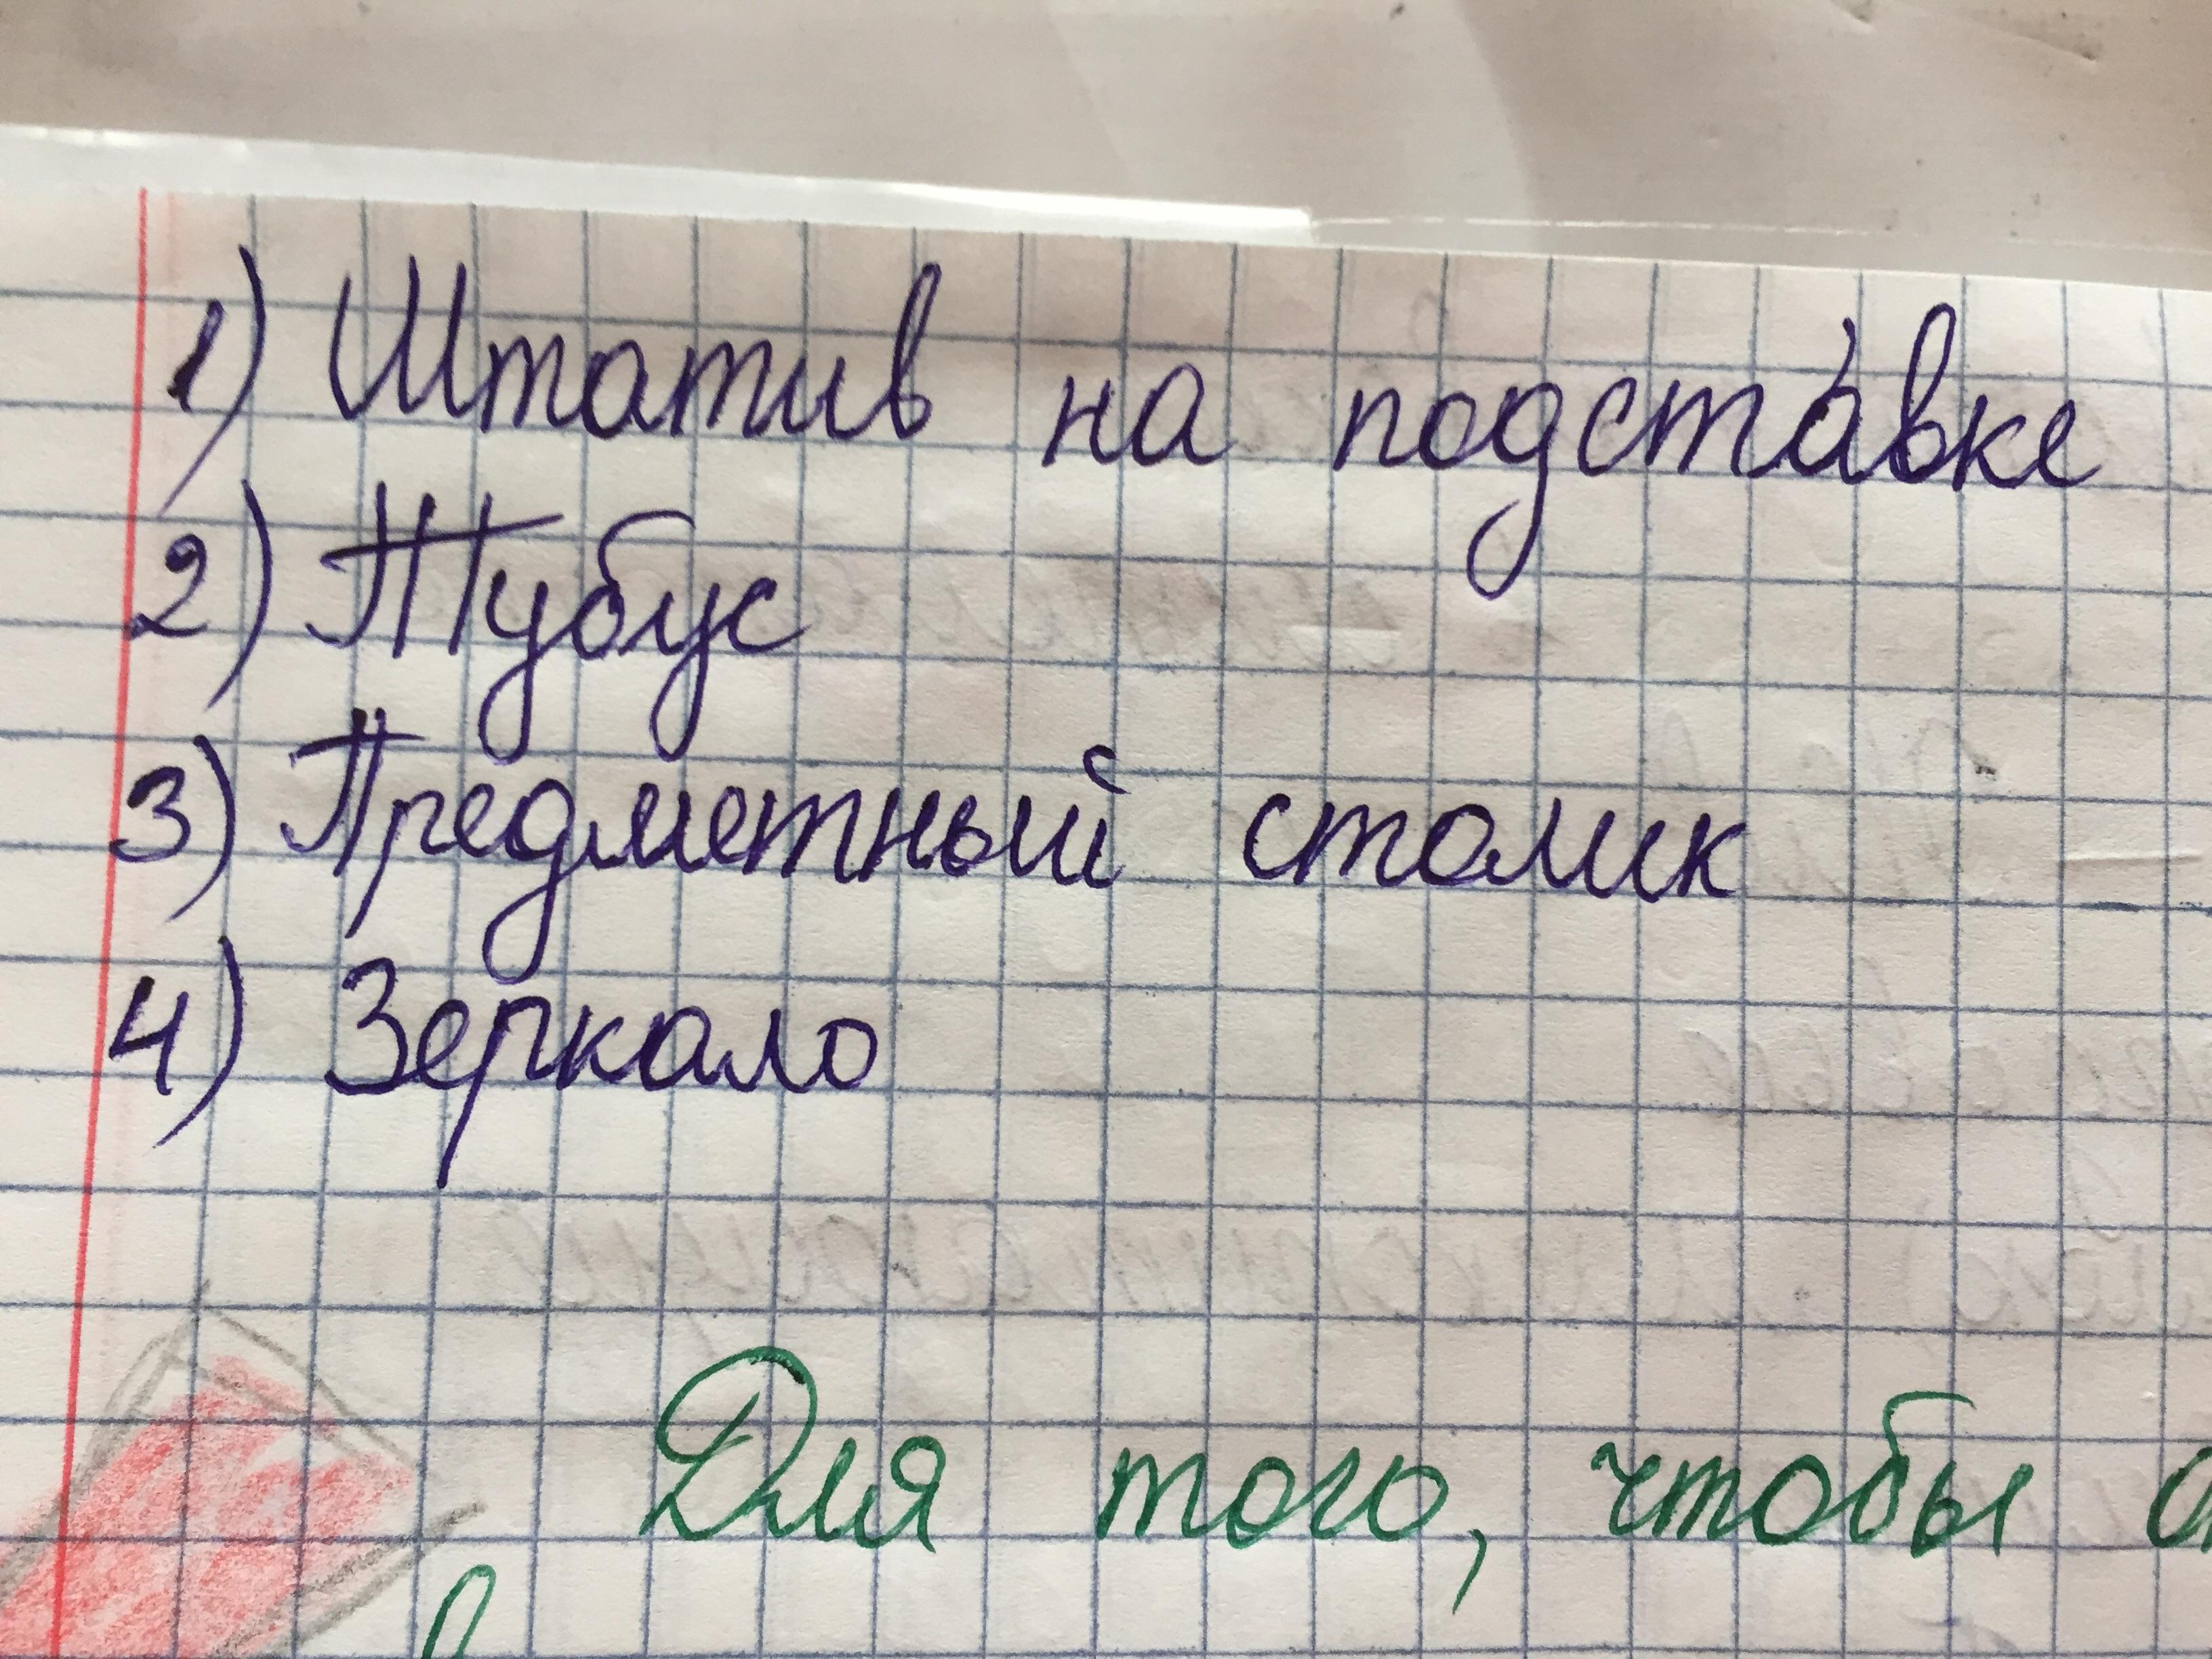 1) Штатив на подста́вке
2) Тубус
3) Предметный столик
4) Зеркало
Для того, чтобы